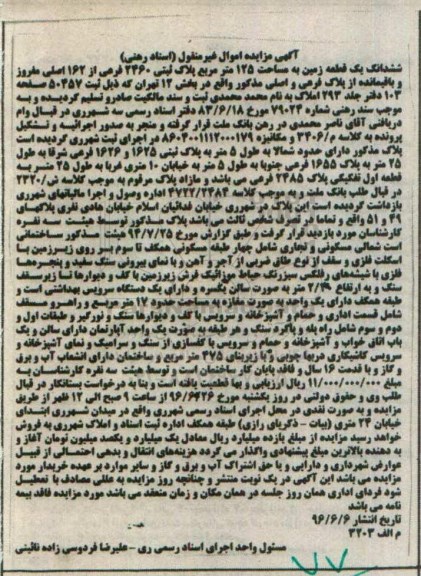 آگهی مزایده اموال غیرمنقول (اسناد رهنی)
ششدانگ یک قطعه زمین به مساحت ۱۲۵ متر مربع پلاک ثبتی ۲۴۶۰ فرعی از ۱۶۲ اصلی مفروز
و باقیمانده از پلاک فرعی و اصلی مذکور واقع در بخش ۱۲ تهران که ذیل ثبت ۵۰۴۵۷ صفحه
۱۰۳ دفتر جلد ۲۹۳ املاک به نام محمد محمدی ثبت و سند مالکیت صادرو تسلیم گردیده و به
موجب سند رهنی شماره ۷۹۰۲۴ مورخ ۸۳/۶/۱۸ دفتر اسناد رسمی سه شهرری در قبال وام
دریافتی آقای ناصر محمدی در رهن بانک ملت قرار گرفته و منجر به صدور اجرائیه و تشکیل
پرونده به کلاسه م/۳۴۰۶ و مکانیزه ۸۶۰۴۰۰۱۱۱۲۰۰۰۱۷۹ در اجرای ثبت شهرری گردیده است
پلاک مذکور دارای حدود شمالا به طول ۵ متر به پلاک ثبتی ۱۶۲۵ و ۱۶۲۶ فرعی شرقا به طول
۲۵ متر به پلاک ۱۶۵۵ فرعی جنوبا به طول ۵ متر به خیابان ۱۰ متری غربا به طول ۲۵ متر به
قطعه اول تفکیکی پلاک ۲۴۸۵ فرعی می باشد و مازاد پلاک مرقوم به موجب کلاسه تی/۲۳۲۰
در قبال طلب بانک ملت و به موجب کلاسه ۴۷۲۲/۲۳۸۴ اداره وصول و اجرا مالیاتهای شهرری
بازداشت گردیده است این پلاک در شهرری خیابان فدائیان اسلام خیابان هادی نفری پلاکهای
۴۹ و ۵۱ واقع و تماما در تصرف شخص ثالث می باشد پلاک مذکور توسط هیئت سه نفره
کارشناسان مورد بازدید قرار گرفت و طبق گزارش مورخ ۹۴/۷/۲۵ هیئت مذکور ساختمانی
است شمالی مسکونی و تجاری شامل چهار طبقه مسکونی همکف تا سوم بر روی زیرزمین با
اسکلت فلزی و سقف از نوع طاق ضربی از آجر و آهن و با نمای بیرونی سنگ سفید و پنجرهها
فلزی با شیشههای رفلکس سبزرنگ حیاط موزائیک فرش زیرزمین با کف و دیوارها تا زیر سقف
سنگ و به ارتفاع ۲/۴۰ متر به صورت سالن یکسره و دارای یک دستگاه سرویس بهداشتی است و
طبقه همکف دارای یک واحد به صورت مغازه به مساحت حدود ۱۷ متر مربع و راهرو مسقف
شامل قسمت اداری و حمام و آشپزخانه و سرویس با کف و دیوارها سنگ و نورگیر و طبقات اول و
دوم و سوم شامل راه پله و پاگرد سنگ و هر طبقه به صورت یک واحد آپارتمان دارای سالن و یک
باب اتاق خواب و آشپزخانه و حمام و سرویس با کفسازی از سنگ و سرامیک و نمای آشپزخانه و
سرویس کاشیکاری دربها چوبی و با زیربنای ۴۷۵ متر مربع و ساختمان دارای انشعاب آب و برق
و گاز و با قدمت ۱۶ سال و فاقد پایان کار ساختمان است و توسط هیئت سه نفره کارشناسان به
مبلغ ۱۱/۰۰۰/۰۰۰/۰۰۰ ریال ارزیابی و بها قطعیت یافته است و بنا به درخواست بستانکار در قبال
طلب وی و حقوق دولتی در روز یکشنبه مورخ ۹۶/۶/۲۶ از ساعت ۹ صبح الی ۱۲ ظهر از طریق
مزایده و به صورت نقدی در محل اجرای اسناد رسمی شهرری واقع در میدان شهرری ابتدای
خیابان ۲۴ متری (بیات - ذکریای رازی) طبقه همکف اداره ثبت اسناد و املاک شهرری به فروش
خواهد رسید مزایده از مبلغ یازده میلیارد ریال معادل یک میلیارد و یکصد میلیون تومان آغاز و
به دهنده بالاترین مبلغ پیشنهادی واگذار می گردد هزینههای انتقال و بدهی احتمالی از قبیل
عوارض شهرداری و دارایی و یا حق اشتراک آب و برق و گاز و سایر موارد بر عهده خریدار مورد
مزایده می باشد این آگهی در یک نوبت منتشر و چنانچه روز مزایده به عللی مصادف با تعطیل
شود فردای اداری همان روز جلسه در همان مکان و زمان منعقد می باشد مورد مزایده فاقد بیمه
نامه می باشد
تاریخ انتشار ۹۶/۶/۶
م الف ۳۲۰۳
مسئول واحد اجرای اسناد رسمی ری - علیرضا فردوسی زاده نائینی
۷۷